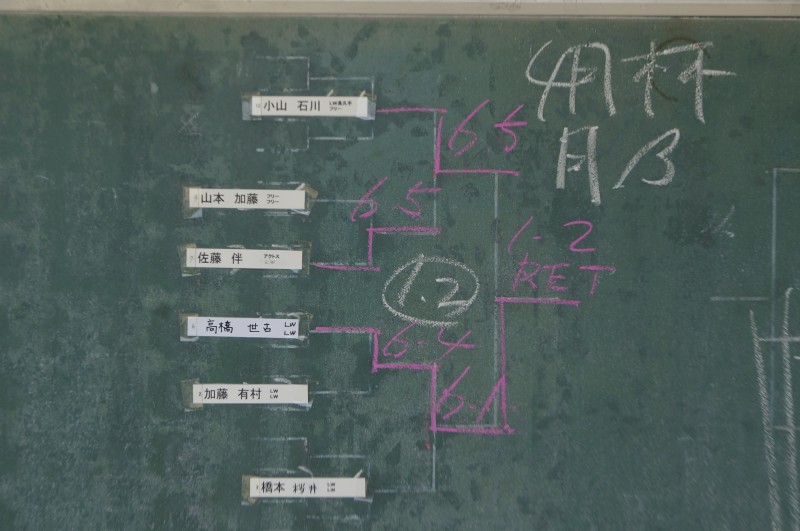 明杯
月B
小山 石川
6 5
山本 加藤 フリー フリー
6.5
1-2
RET
佐藤 伴 アクトス
1.2
高橋 世古 LW LW
6-4
加藤 有村 LW LW
6-1
橋本 桜井 LW LW